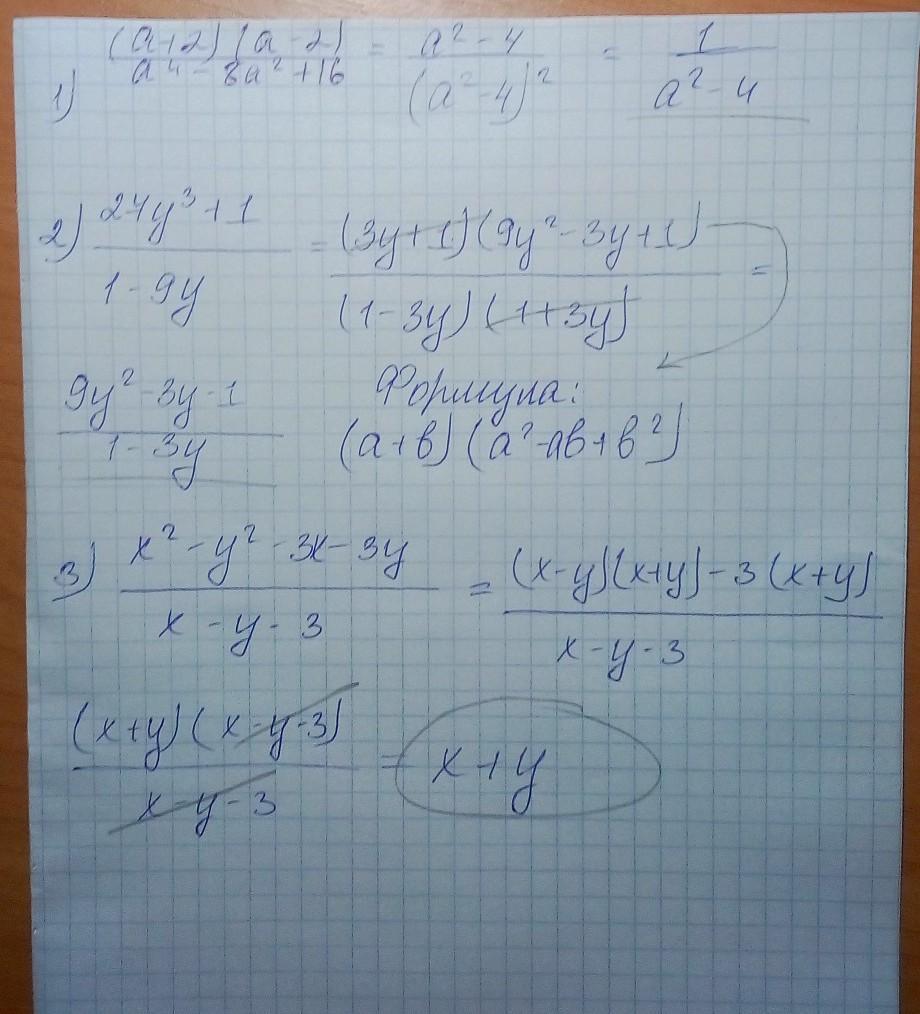 1) (a+2)(a-2) / a⁴-8a²+16 = a²-4 / (a²-4)² = 1 / a²-4
2) 27y³+1 / 1-9y = (3y+1)(9y²-3y+1) / (1-3y)(1+3y) =
9y²-3y-1 / 1-3y
Формула:
(a+b)(a²-ab+b²)
3) x²-y²-3x-3y / x-y-3 = (x-y)(x+y)-3(x+y) / x-y-3
(x+y)(x-y-3) / x-y-3 = x+y